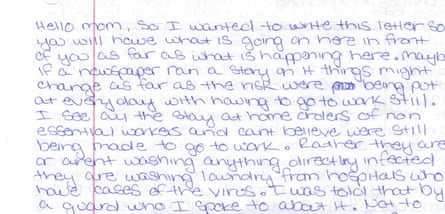 Hello mom, So I wanted to write this letter so
you will have what is going on here in front
of you as far as what is happening here. maybe
if a newspaper ran a story on it things might
change as far as the risk were being put
at everyday with having to go to work still.
I see all the stay at home orders of non
essential workers and cant believe were still
being made to go to work. Rather they are
or arent washing anything directley infected
they are washing laundry from hospitals who
have cases of the virus. I was told that by
a guard who I spoke to about it. Not to